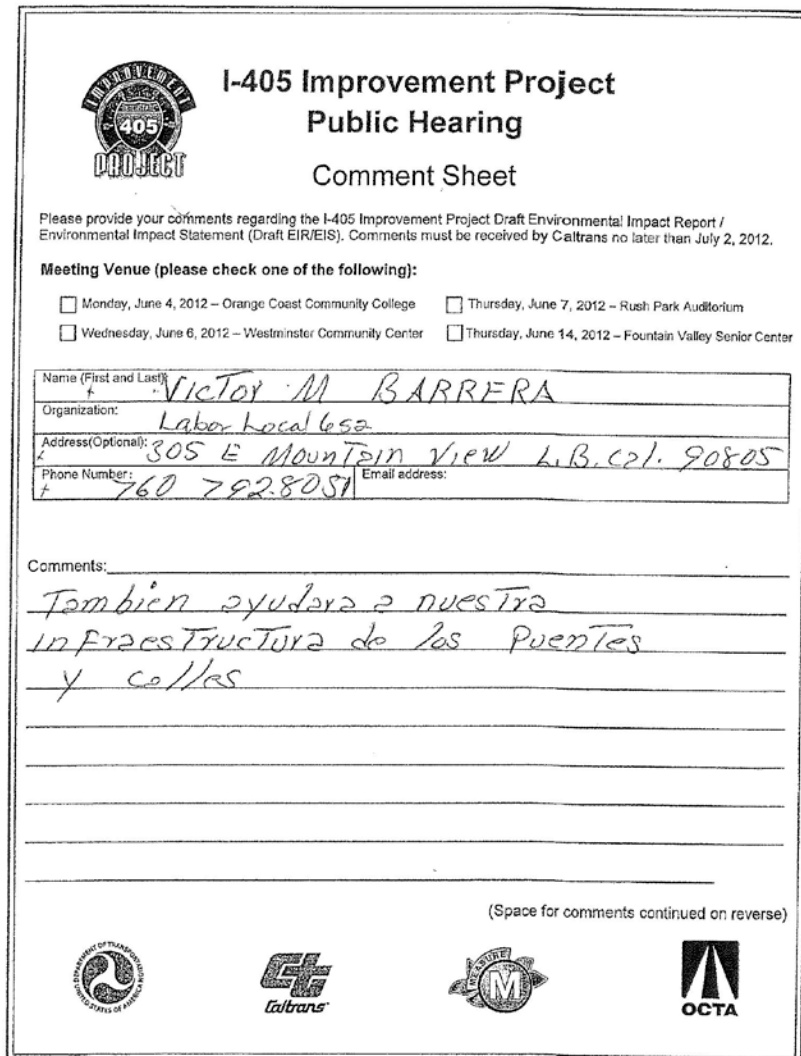 IMPROVEMENT
405
PROJECT
I-405 Improvement Project
Public Hearing
Comment Sheet
Please provide your comments regarding the I-405 Improvement Project Draft Environmental Impact Report /
Environmental Impact Statement (Draft EIR/EIS). Comments must be received by Caltrans no later than July 2, 2012.
Meeting Venue (please check one of the following):
Monday, June 4, 2012 – Orange Coast Community College
Thursday, June 7, 2012 – Rush Park Auditorium
Wednesday, June 6, 2012 – Westminster Community Center
Thursday, June 14, 2012 – Fountain Valley Senior Center
Name (First and Last): VICTOR M BARRERA
Organization: Labor Local 652
Address(Optional): 305 E MOUNTAIN VIEW L.B. Cal. 90805
Phone Number: 760 792.8051 Email address:
Comments:
Tambien ayudara a nuestra
infraestructura de los Puentes
y calles
(Space for comments continued on reverse)
DEPARTMENT OF TRANSPORTATION
UNITED STATES OF AMERICA
Caltrans
MEASURE
M
OCTA